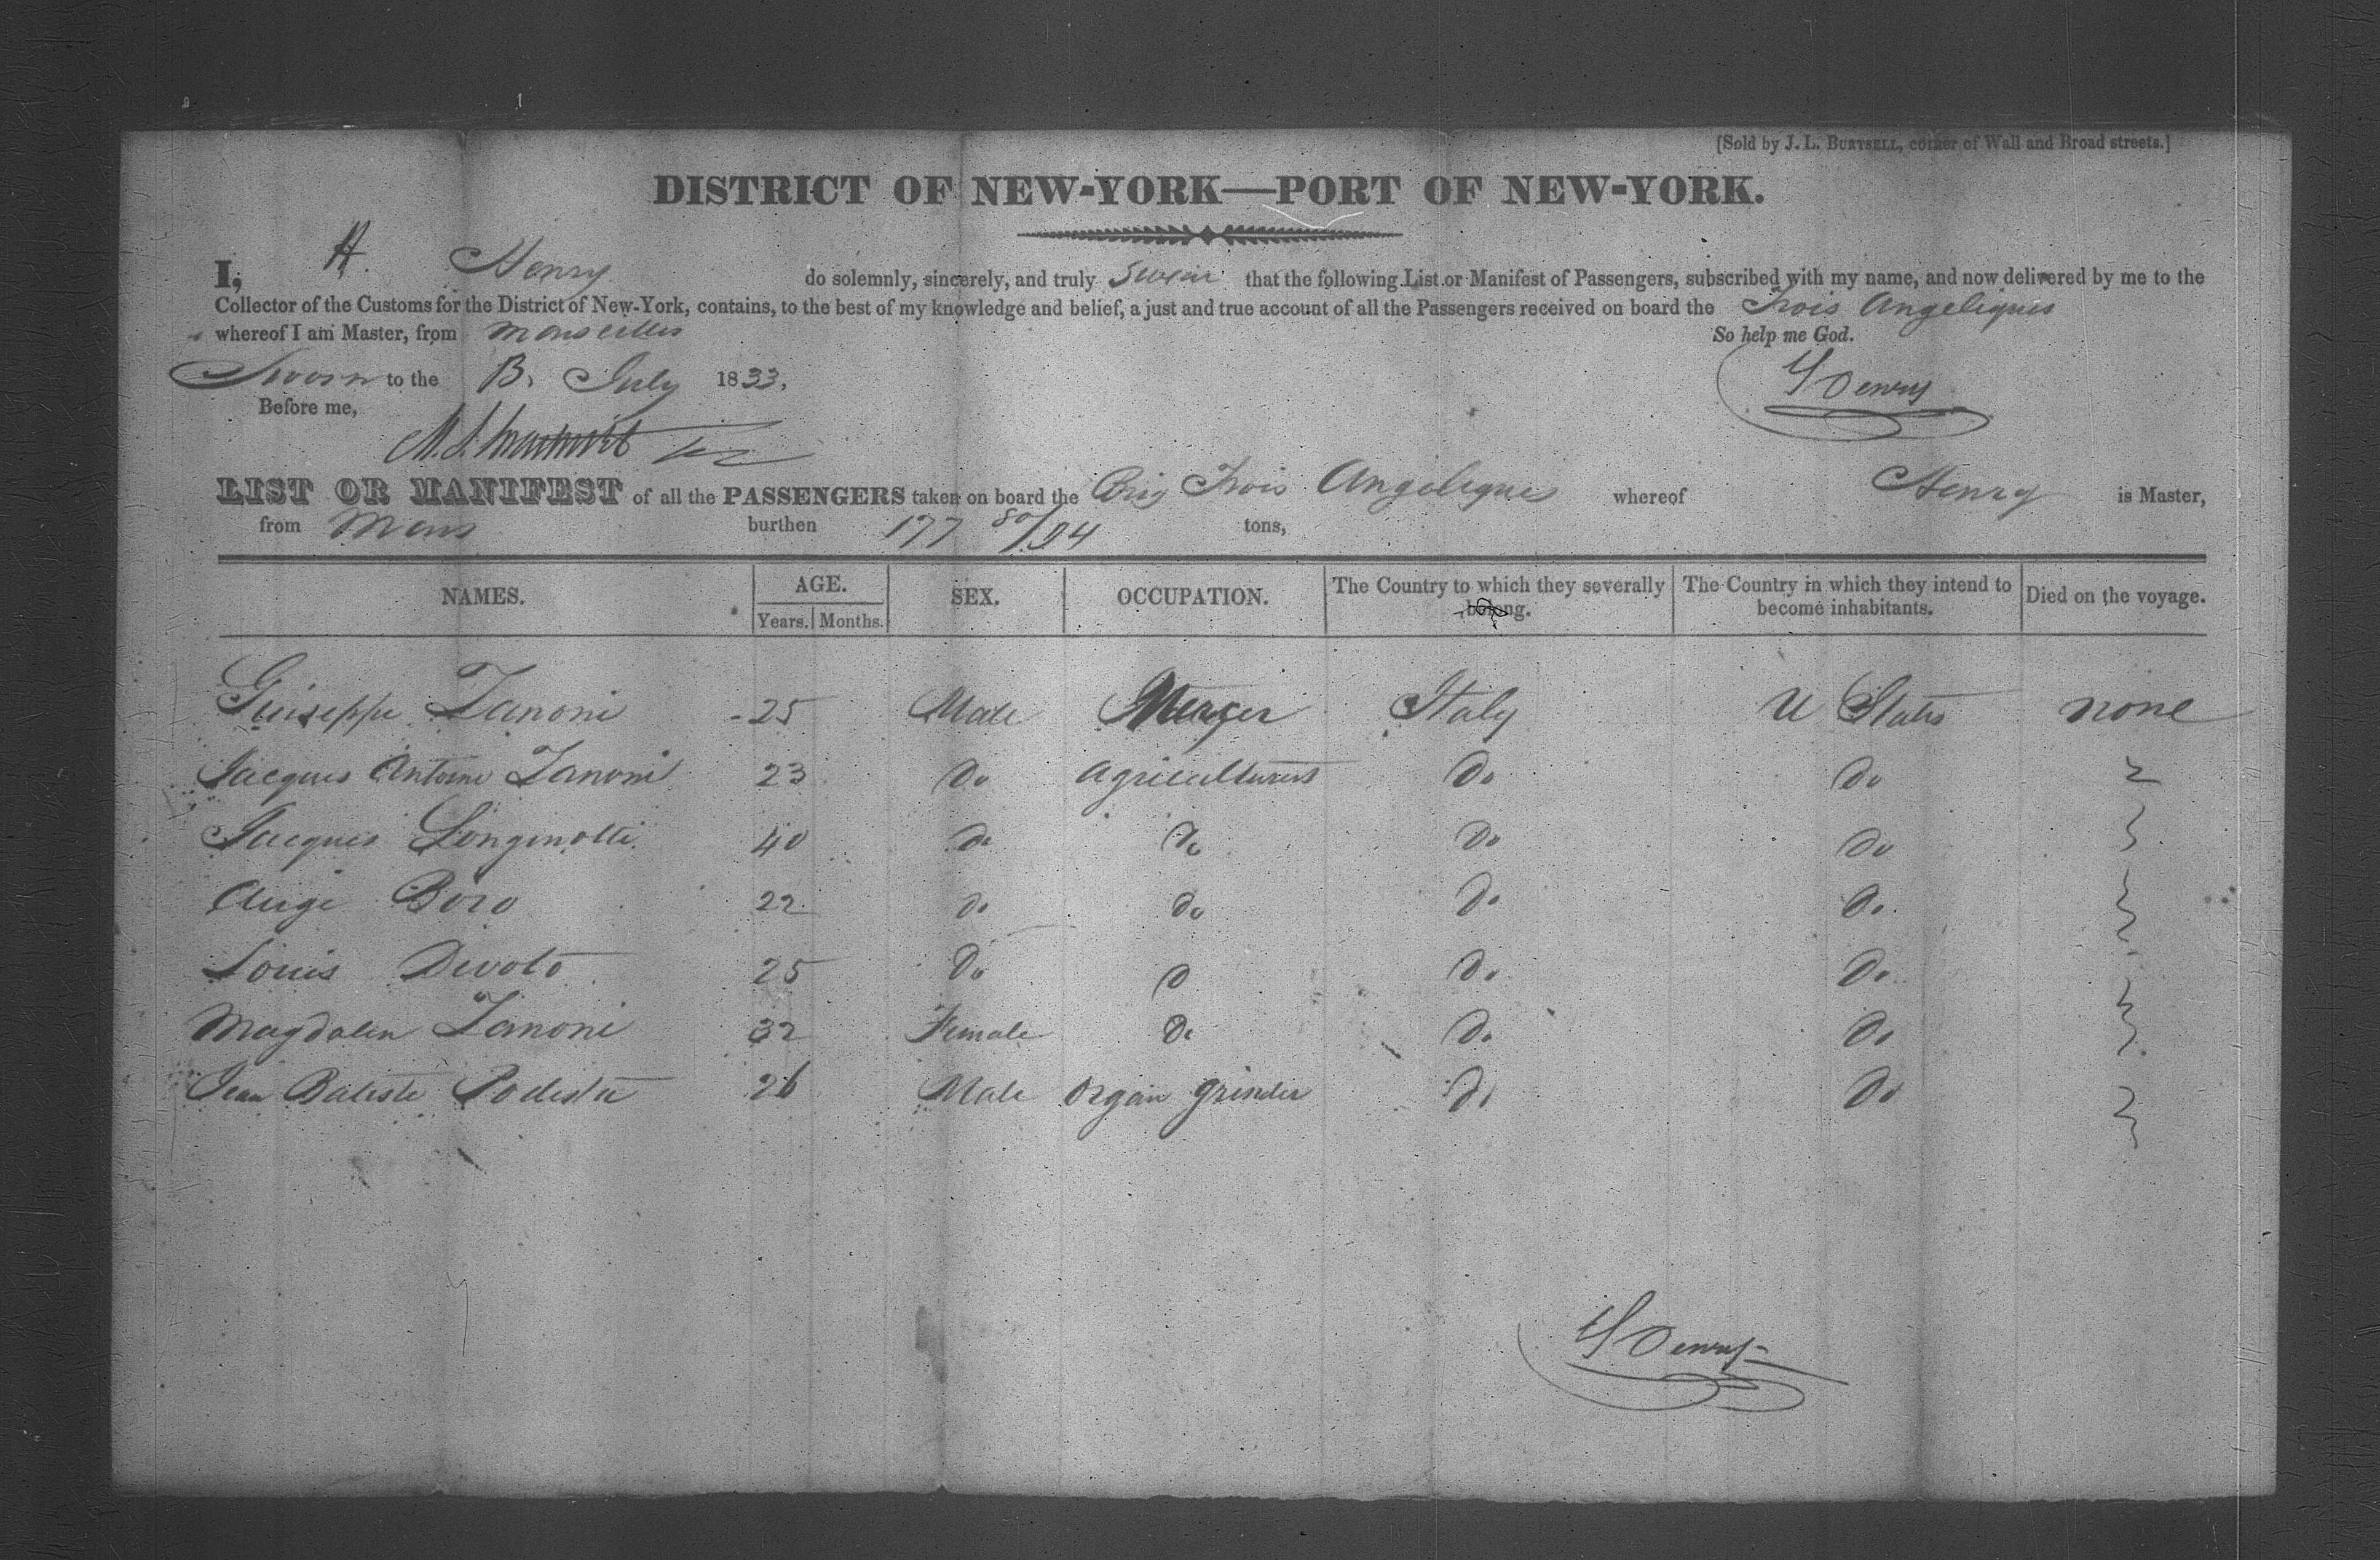 [Sold by J. L. BURTSELL, corner of Wall and Broad streets.]
DISTRICT OF NEW-YORK—PORT OF NEW-YORK.
I, H. Henry do solemnly, sincerely, and truly swear that the following List or Manifest of Passengers, subscribed with my name, and now delivered by me to the
Collector of the Customs for the District of New-York, contains, to the best of my knowledge and belief, a just and true account of all the Passengers received on board the Trois Angeliques
whereof I am Master, from Marseilles So help me God.
Sworn to the July 1833, HHenry
Before me,
LIST OR MANIFEST of all the PASSENGERS taken on board the Brig Trois Angeliques whereof Henry is Master,
from Mars burthen 177 80/94 tons,
NAMES. AGE. Years. Months. SEX. OCCUPATION. The Country to which they severally belong. The Country in which they intend to become inhabitants. Died on the voyage.
Guiseppe Zanoni 25 Male Italy U States none
Jacques Antoine Zanoni 23 Do Agriculturist Do Do
Jacques Longinotti 40 do Do Do Do
Ange Boro 22 do do Do Do
Louis Devoto 25 Do D Do Do
Magdalen Zanoni 32 Female Do Do Do
Jean Batiste Podesta 26 Male Organ grinder Do Do
HHenry